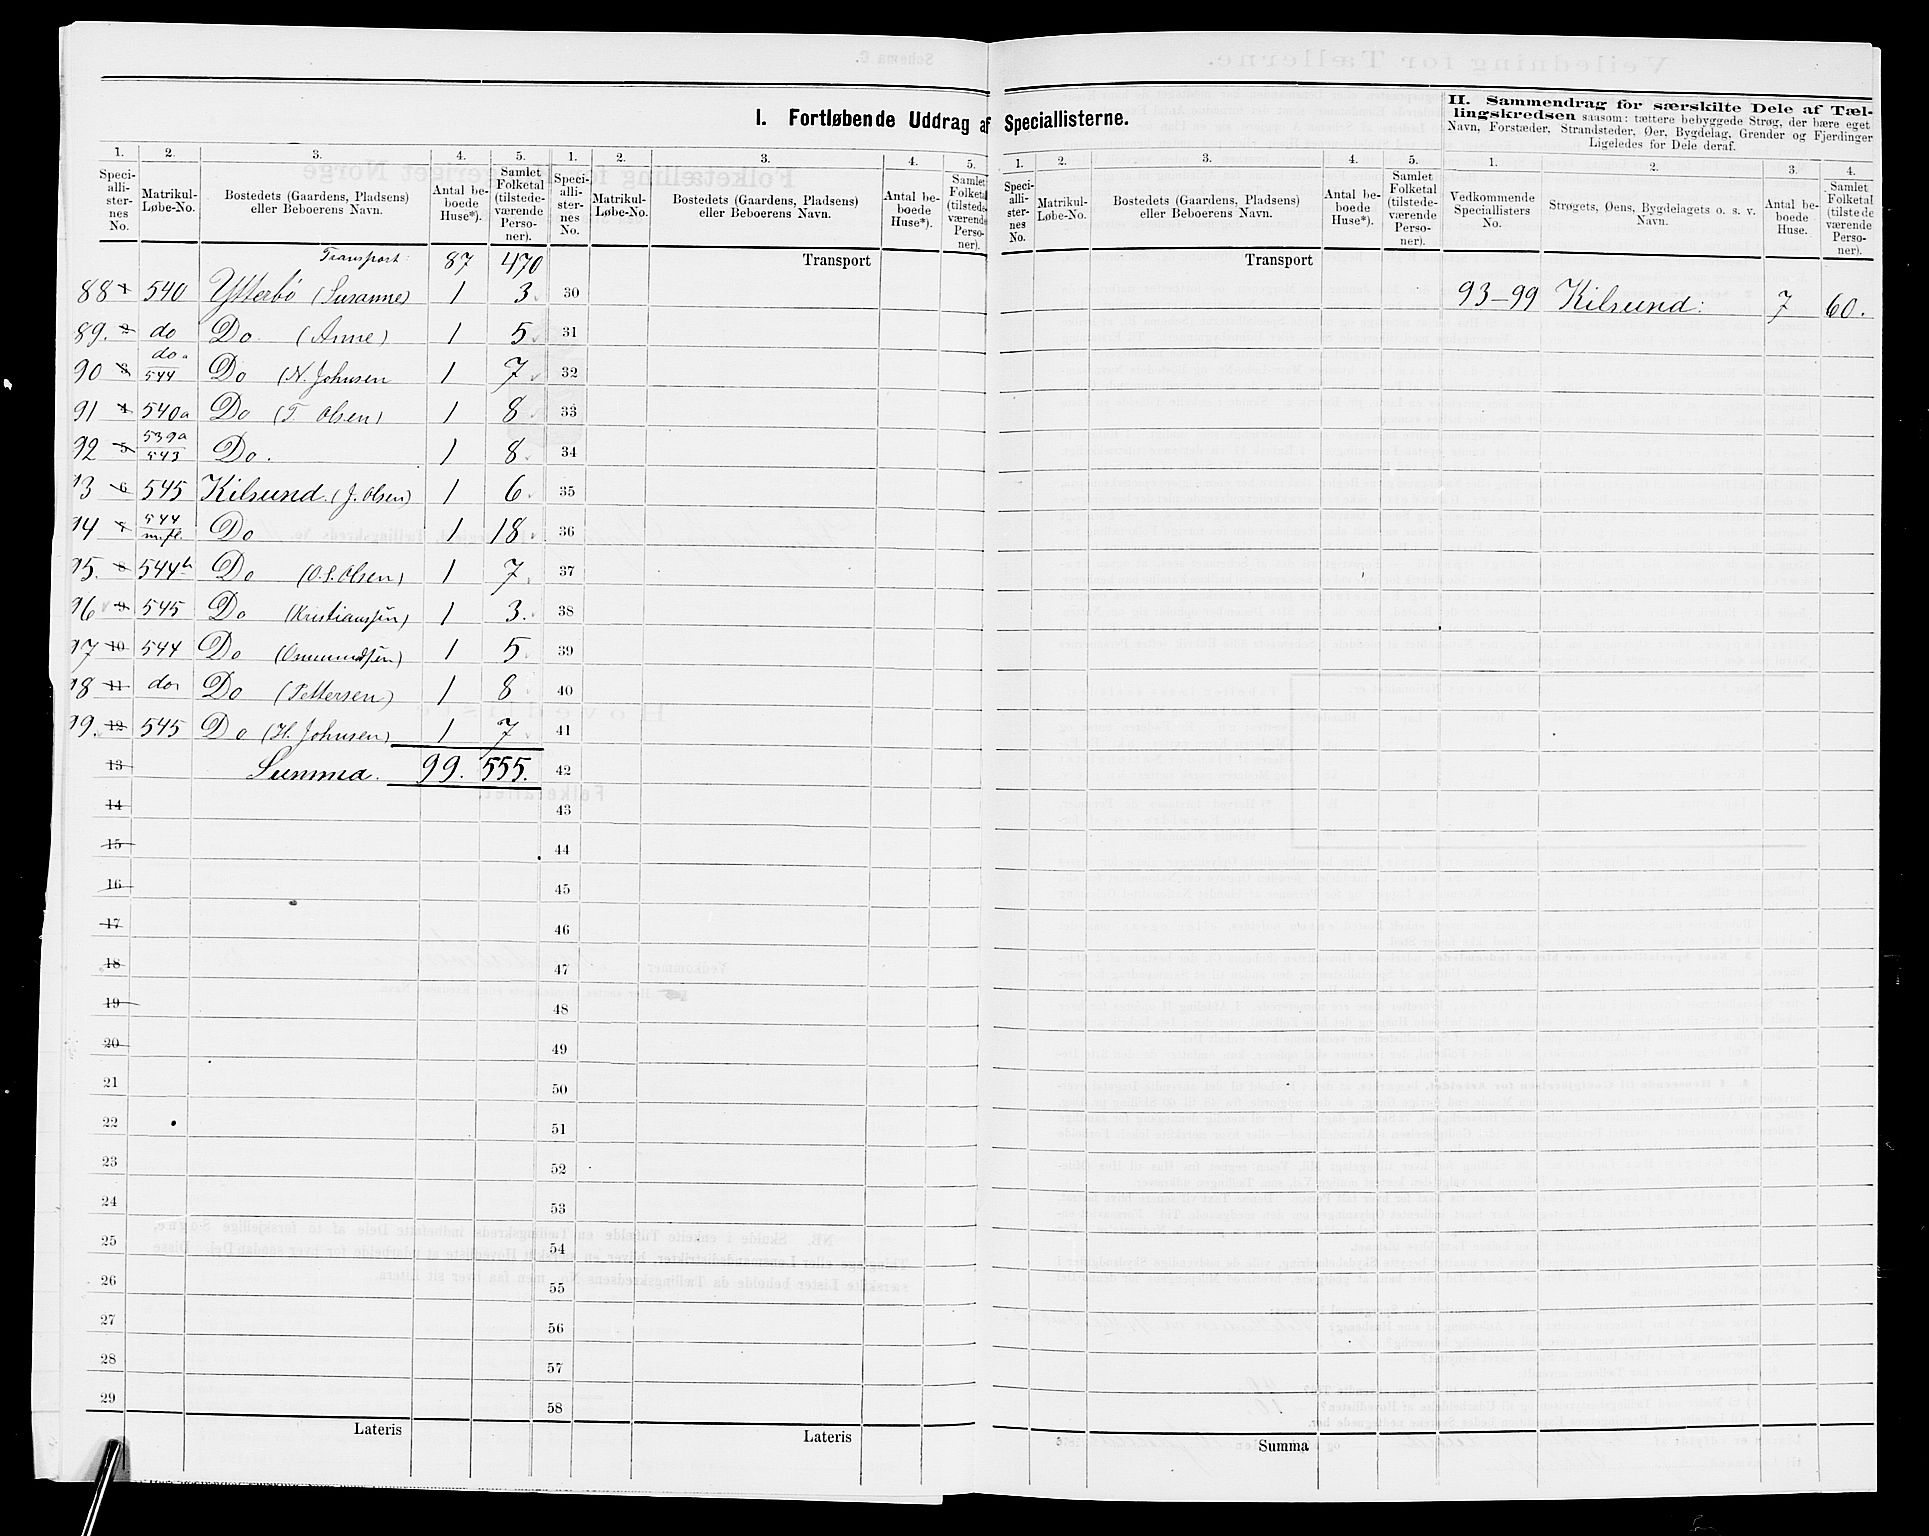 I. Fortløbende Uddrag af Speciallisterne.
II. Sammendrag for særskilte Dele af Tællingskredsen saasom: tættere bebyggede Strøg, der bære eget
Navn, Forstæder, Strandsteder, Øer, Bygdelag, Grender og Fjerdinger
Ligeledes for Dele deraf.
1. 2. 3. 4. 5. 1. 2. 3. 4. 5.
Speciallisternes No. Matrikul-Løbe-No. Bostedets (Gaardens, Pladsens) eller Beboerens Navn. Antal beboede Huse*). Samlet Folketal (tilstedeværende Personer).
Speciallisternes No. Matrikul-Løbe-No. Bostedets (Gaardens, Pladsens) eller Beboerens Navn. Antal beboede Huse*). Samlet Folketal (tilstedeværende Personer).
Transport 87 470
88 1 540 Ytterbö (Susanne) 1 3
89. 2 do Do. (Anne) 1 5
90 3 do. 544 Do (N. Johnsen 1 7
91 4 540a Do (T Olsen) 1 8
92 5 539a 543 Do. 1 8
93 6 545 Kilsund. (J. Olsen) 1 6
94 7 544 m.fl. Do 1 18
95. 8 544b Do (O.S. Olsen) 1 7
96 9 545 Do (Kristianssen) 1 3.
97 10 544 Do (Osmundsen) 1 5
98 11 do Do (Pettersen) 1 8
99. 12 545 Do (H. Johnsen) 1 7
13 Summa. 99. 555.
14
15
16
17
18
19
20
21
22
23
24
25
26
27
28
29
Lateris
Transport
30
31
32
33
34
35
36
37
38
39
40
41
42
43
44
45
46
47
48
49
50
51
52
53
54
55
56
57
58
Lateris
1. 2. 3. 4. 5.
Speciallisternes No. Matrikul-Løbe-No. Bostedets (Gaardens, Pladsens) eller Beboerens Navn. Antal beboede Huse*). Samlet Folketal (tilstedeværende Personer).
Transport
Summa
1. 2. 3. 4.
Vedkommende Speciallisters No. Strøgets, Øens, Bygdelagets o. s. v. Navn. Antal beboede Huse. Samlet Folketal (tilstedeværende Personer).
93-99 Kilsund: 7 60.